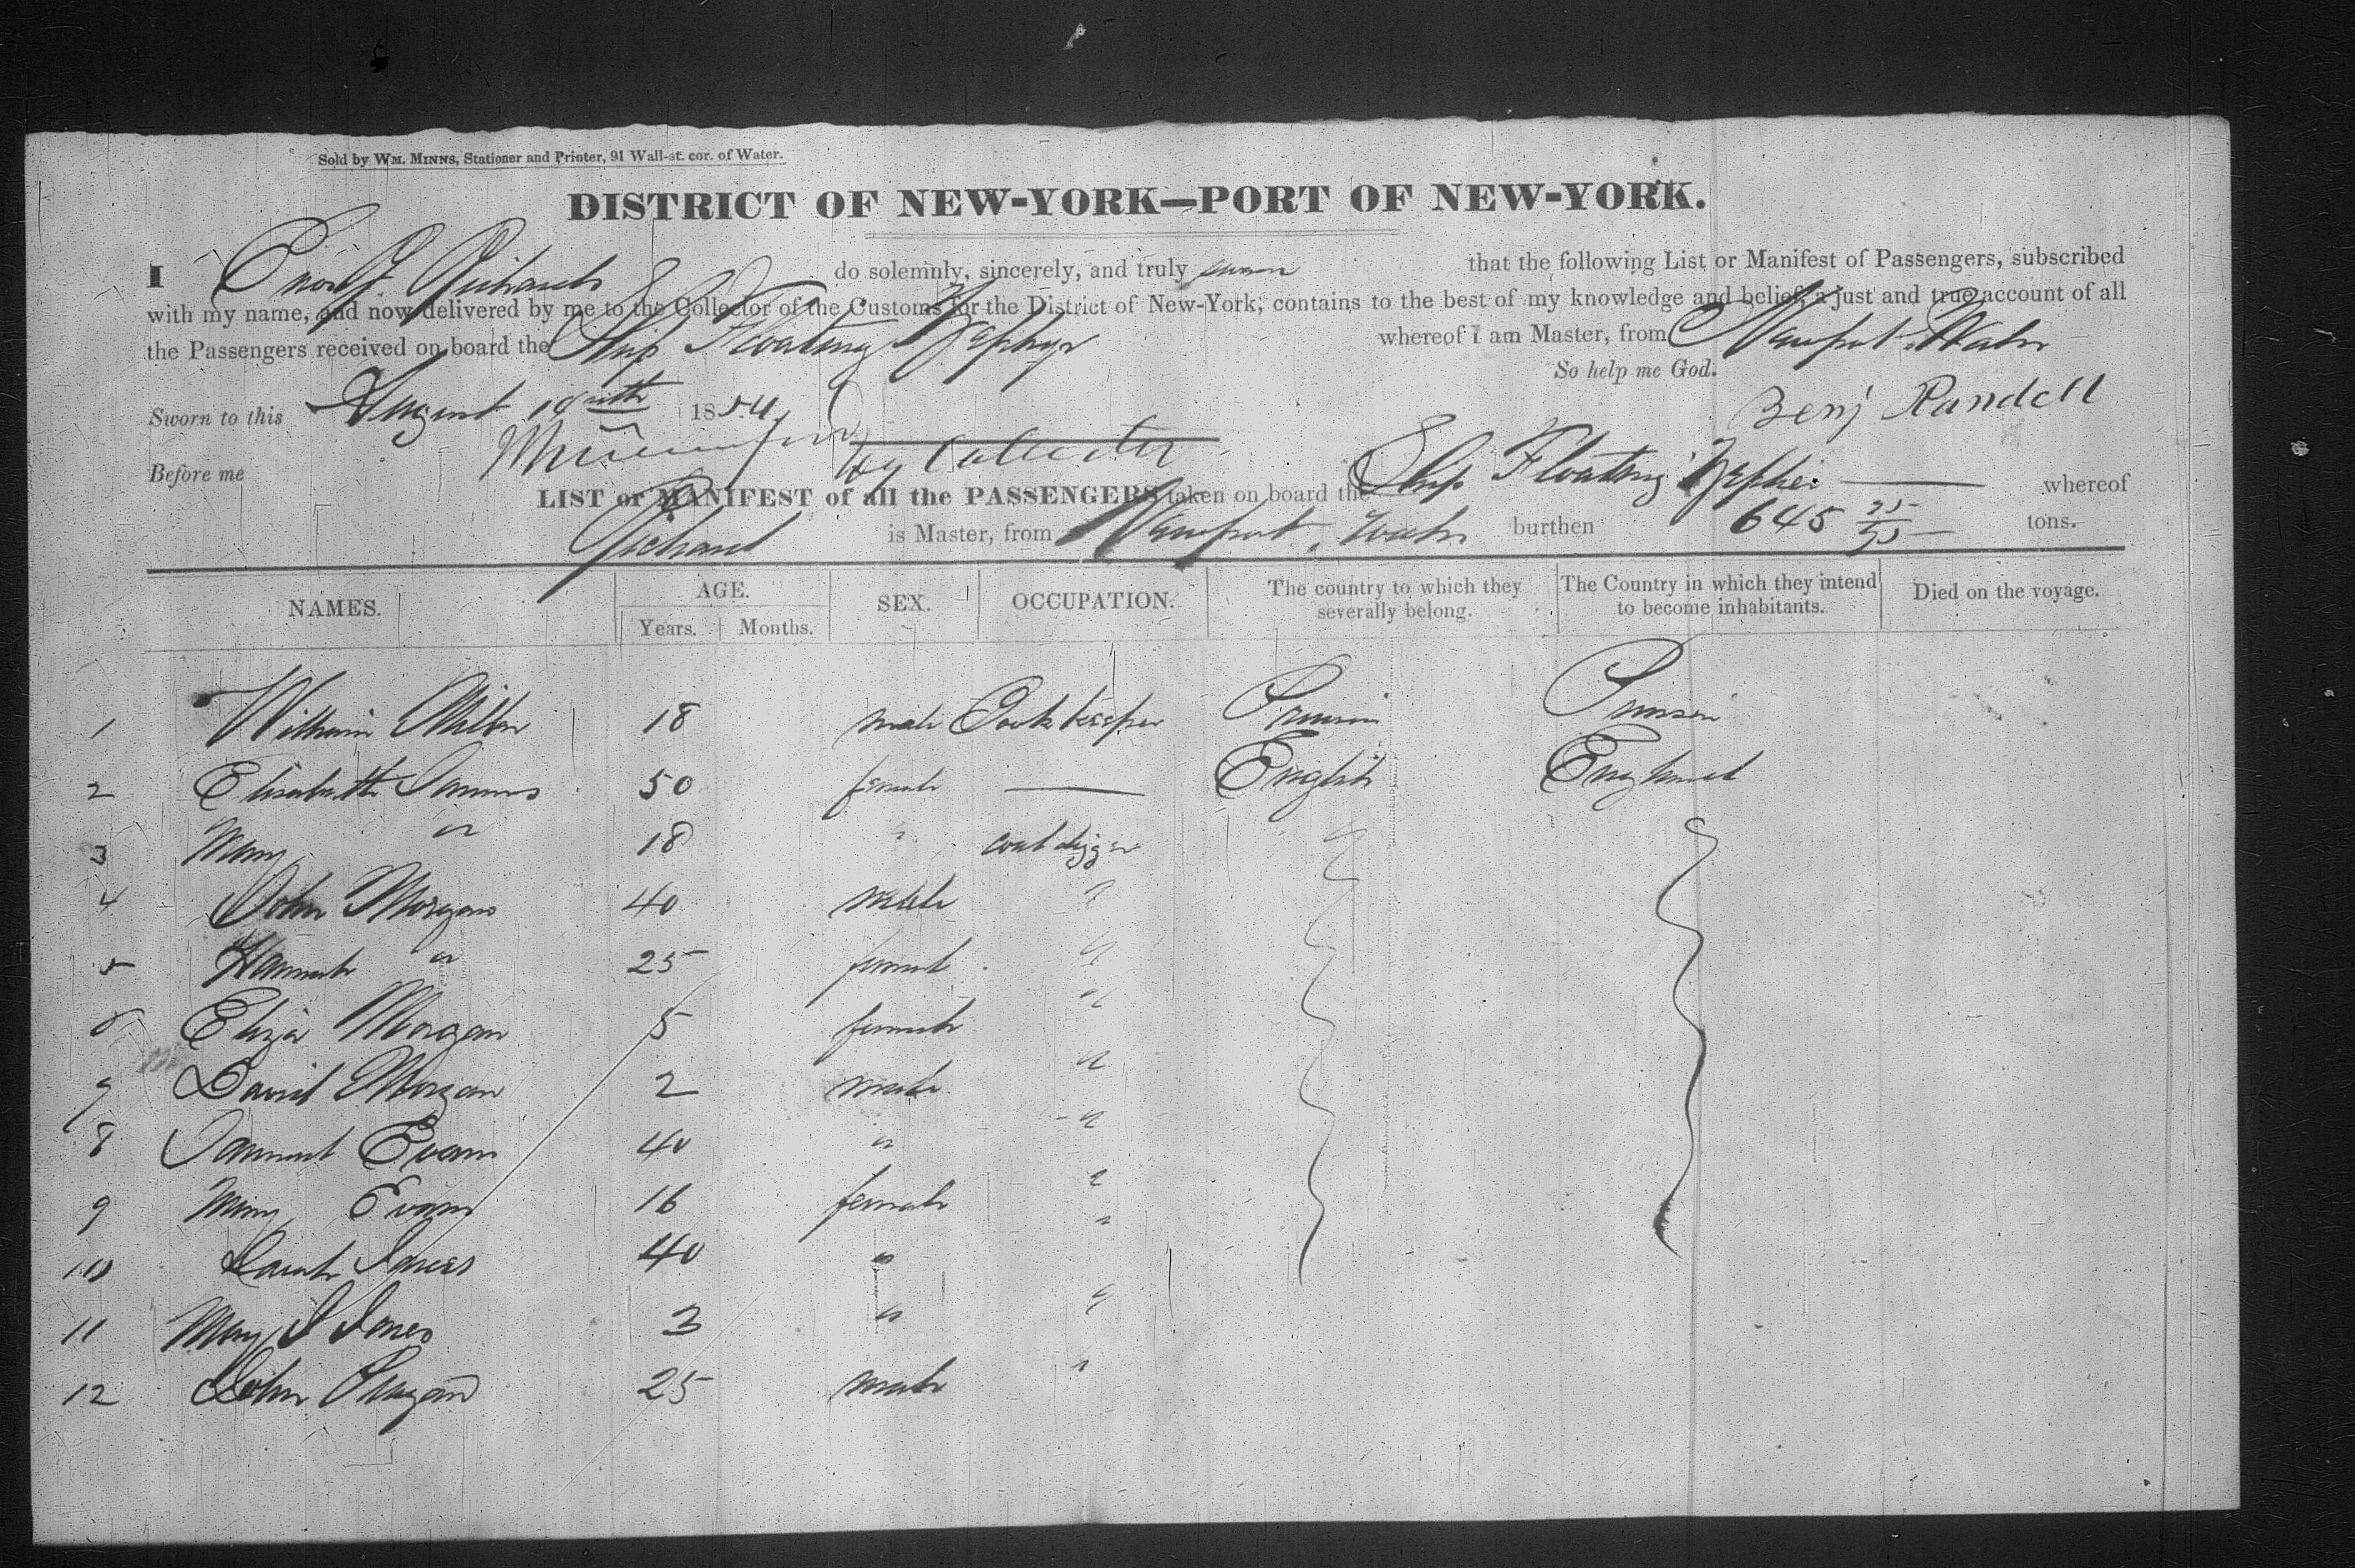 Sold by WM. MINNS, Stationer and Printer, 91 Wall-st. cor. of Water.
DISTRICT OF NEW-YORK—PORT OF NEW-YORK.
I Richards do solemnly, sincerely, and truly swear that the following List or Manifest of Passengers, subscribed
with my name, and now delivered by me to the Collector of the Customs for the District of New-York, contains to the best of my knowledge and belief, a just and true account of all
the Passengers received on board the Ship Floating Zephyr whereof I am Master, from Newport Wales
So help me God.
Sworn to this August 1854 Benj Randell
Before me Dy Collector
LIST or MANIFEST of all the PASSENGERS taken on board the Ship Floating Zepher whereof
Richard is Master, from Newport, Wales burthen 645 tons.
NAMES. AGE. SEX. OCCUPATION. The country to which they severally belong. The Country in which they intend to become inhabitants. Died on the voyage.
Years. Months.
1 18 male Bookkeeper
2 Elisabeth 50 female — English England
3 Mary " 18 " coal digger "
4 John Morgan 40 male "
5 Hannah " 25 female "
6 Eliza Morgan 5 female "
7 David Morgan 2 male "
8 Samuel Evans 40 " "
9 Mary Evans 16 female "
10 Sarah Jones 40 " "
11 Mary J Jones 3 " "
12 John 25 male "